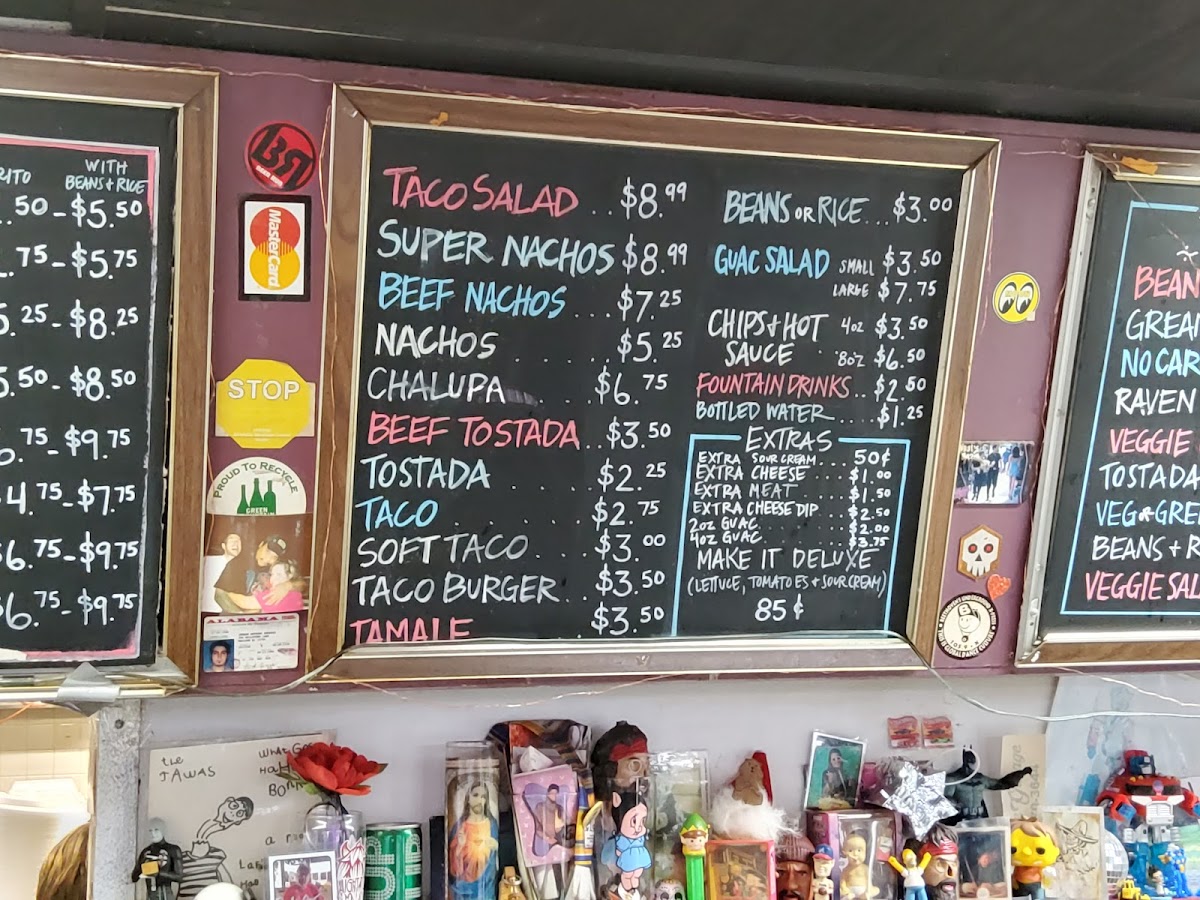 WITH
BEANS & RICE
.50 - $5.50
.75 - $5.75
.25 - $8.25
.50 - $8.50
.75 - $9.75
4.75 - $7.75
$6.75 - $9.75
6.75 - $9.75
MasterCard
STOP
PROUD TO RECYCLE
GREEN
ALABAMA
TACO SALAD .. $8.99
SUPER NACHOS $8.99
BEEF NACHOS ... $7.25
NACHOS ..... $5.25
CHALUPA ..... $6.75
BEEF TOSTADA .. $3.50
TOSTADA .... $2.25
TACO ..... $2.75
SOFT TACO .... $3.00
TACO BURGER .. $3.50
TAMALE $3.50
BEANS OR RICE ... $3.00
GUAC SALAD SMALL $3.50
LARGE $7.75
CHIPS & HOT 4oz $3.50
SAUCE 8oz $6.50
FOUNTAIN DRINKS .. $2.50
BOTTLED WATER ... $1.25
EXTRAS
EXTRA SOUR CREAM .... 50¢
EXTRA CHEESE .... $1.00
EXTRA MEAT .... $1.50
EXTRA CHEESE DIP ... $2.50
2oz GUAC .... $2.00
4oz GUAC .... $3.75
MAKE IT DELUXE
(LETTUCE, TOMATOES + SOUR CREAM)
85¢
BEAN
GREA
NO CAR
RAVEN
VEGGIE
TOSTADA
VEG*GRE
BEANS + R
VEGGIE SAL
the
JAWAS